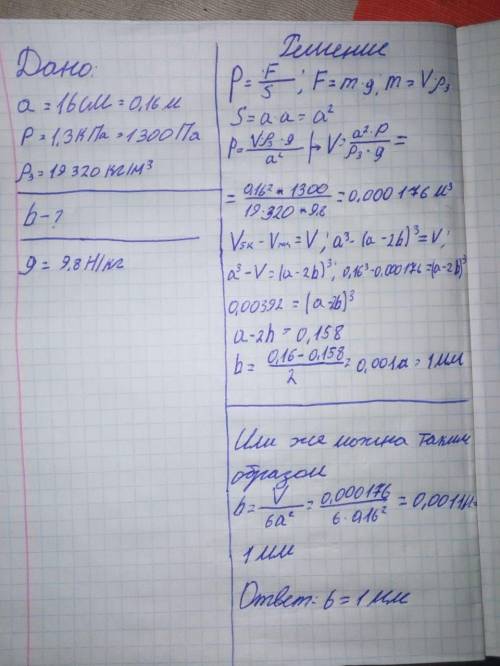 Дано:
a = 16 см = 0,16 м
P = 1,3 кПа = 1300 Па
ρз = 19320 кг/м³
b - ?
g = 9.8 Н/кг
Решение
P = F/S ; F = m·g ; m = V·ρз
S = a·a = a²
P = Vρз·g/a² |→ V = a²·P/ρз·g =
= 0,16² * 1300/19320 * 9.8 = 0,000176 м³
= V ; a³ - (a - 2b)³ = V ;
a³ - V = (a - 2b)³ ; 0,16³ - 0,000176 = (a - 2b)³
0,00392 = (a - 2b)³
a - 2b = 0,158
b = 0,16 - 0,158/2 = 0,001м = 1 мм
Или же можна таким
образом
b = V/6a² = 0,000176/6·0,16² = 0,0011м =
1 мм
Ответ: b = 1 мм